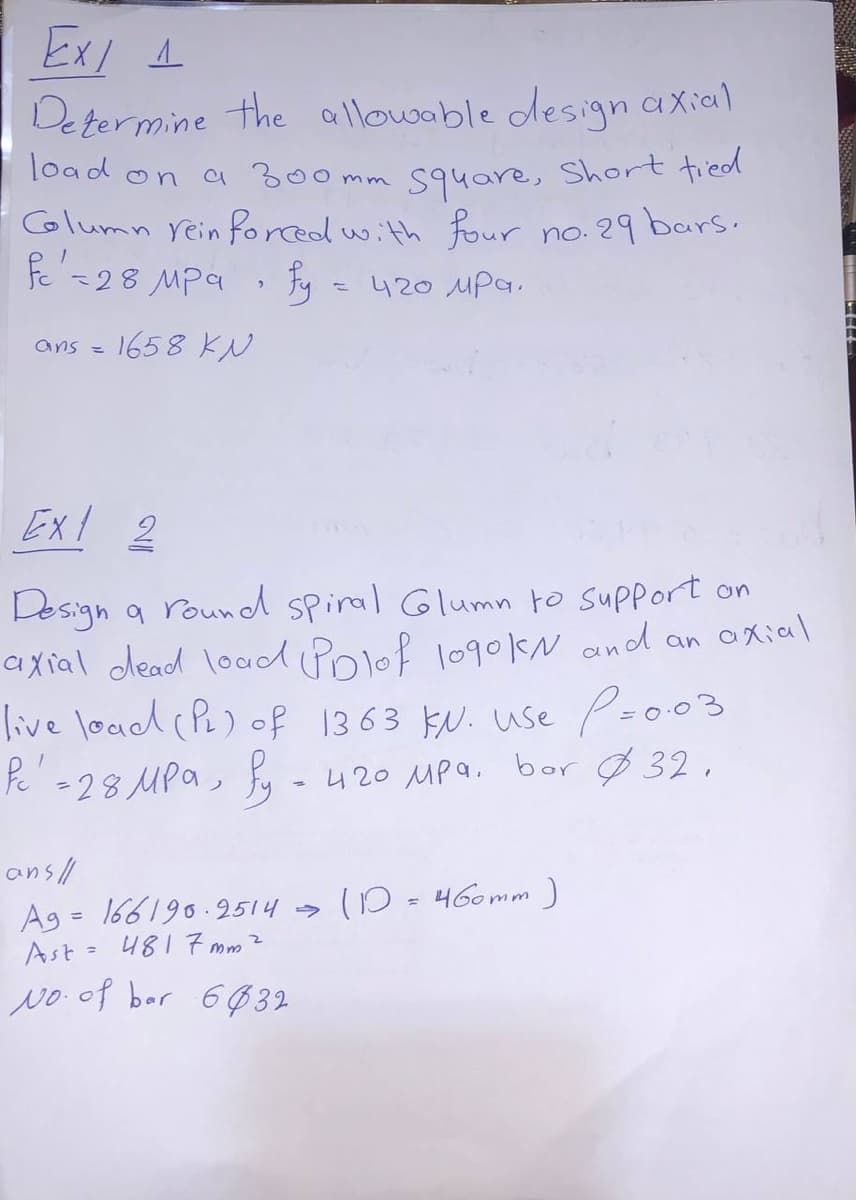 Ex/ 1
Determine the allowable design axial
load on a 300 mm square, Short tied
Column reinforced with four no. 29 bars.
fc' = 28 MPa , fy = 420 MPa.
ans = 1658 KN
Ex/ 2
Design a round spiral Column to support an
axial dead load (PD) of 1090 KN and an axial
live load (PL) of 1363 KN. use ρ = 0.03
fc' = 28 MPa, fy = 420 MPa, bar ϕ 32,
ans //
Ag = 166190.2514 ⇒ (D = 460mm)
Ast = 4817 mm²
No. of bar 6ϕ32